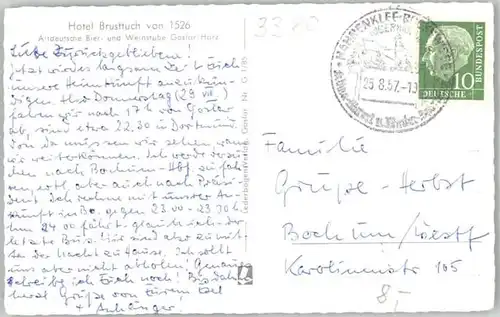 Hotel Brusttuch von 1526
Altdeutsche Bier- und Weinstube Goslar/Harz
3380
Liebe Zurückgebliebene!
Jetzt wird es langsam Zeit, Euch
unsere Heimkunft anzukün-
digen. Also Donnerstag (29. VIII)
fahren wir nach 17h von Goslar
ab, sind etwa 22.30 in Dortmund.
Dann müssen wir sehen, wann
wir weiterkönnen. Ich
nach Bochum-Hbf zu fah-
ren, evtl aber auch nach Präsi-
dent. Ich rechne mit unserer An-
kunft in Bo. gegen 23.00 - 23.30 h.
Um 24.00 fährt - glaub ich - der
letzte Bus. Wir sind aber zu mit-
te der Nacht zu Hause. Ihr sollt
uns aber nicht abholen! Genaues
schreibe ich Euch noch! Bis dahin
herzl. Grüße von Eurem
+ Anhänger
Lederbogen Verlag, Goslar Nr. G
HAHNENKLEE-BOCKSWIESE
26.8.57.-13
DEUTSCHE BUNDESPOST
10
Familie
Grupe-Herbst
Bochum/Westf
Karolinenstr 105
8,-